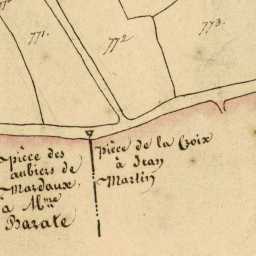 771.
772
773.
pièce des
aubiers de
Mardaux,
à Mme
Barate
pièce de la Croix
à Jean
Martin